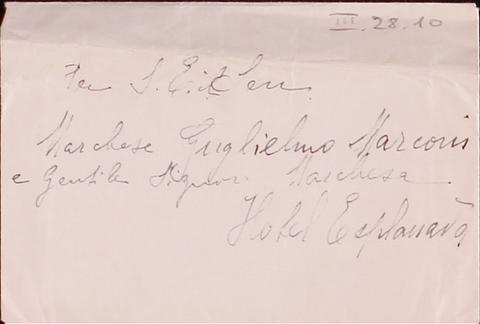 III.28.10
Per S. E. il Sen.
Marchese Guglielmo Marconi
e Gentile Signora Marchesa
Hotel Esplanada